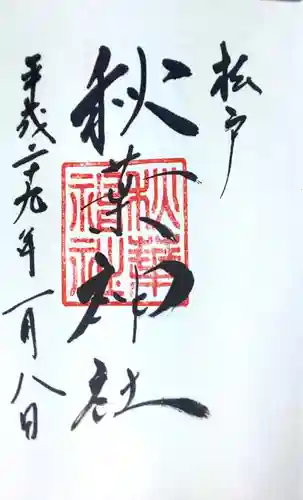 松戸
秋葉神社
秋葉神社
平成二十九年一月八日